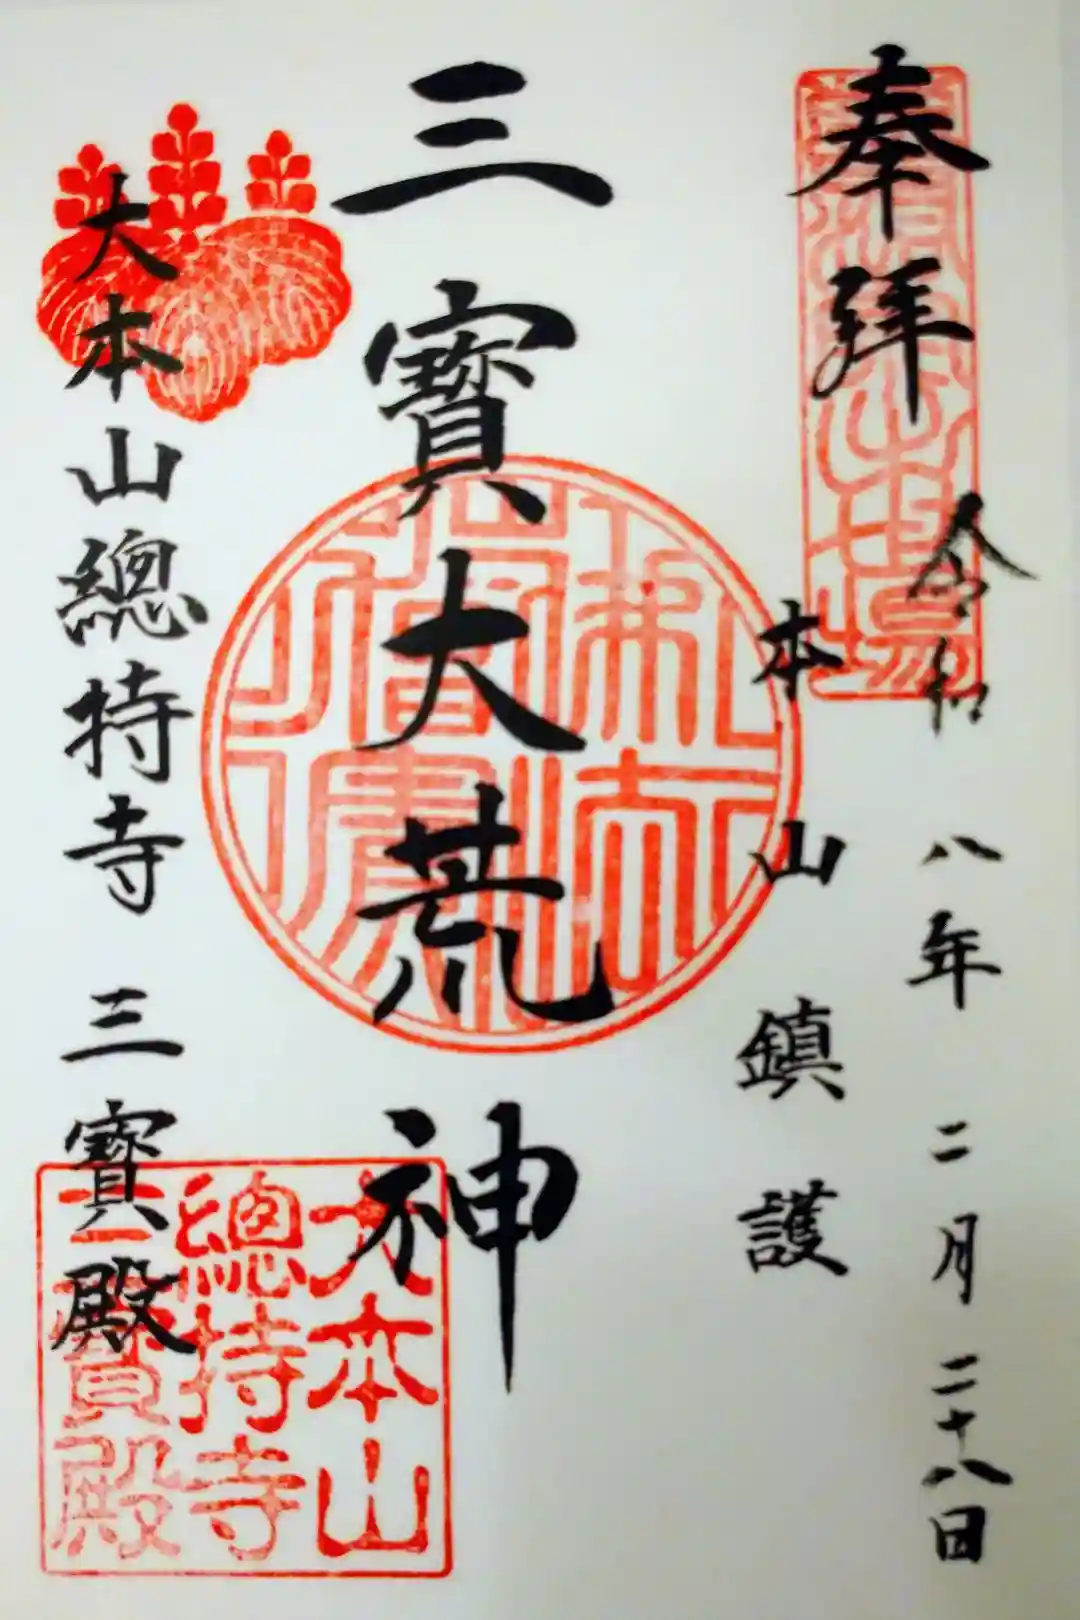 奉拜
令和八年二月二十八日
本山鎮護
三寶大荒神
大本山總持寺 三寶殿
佛法
僧寶
大本山
總持寺
三寶殿